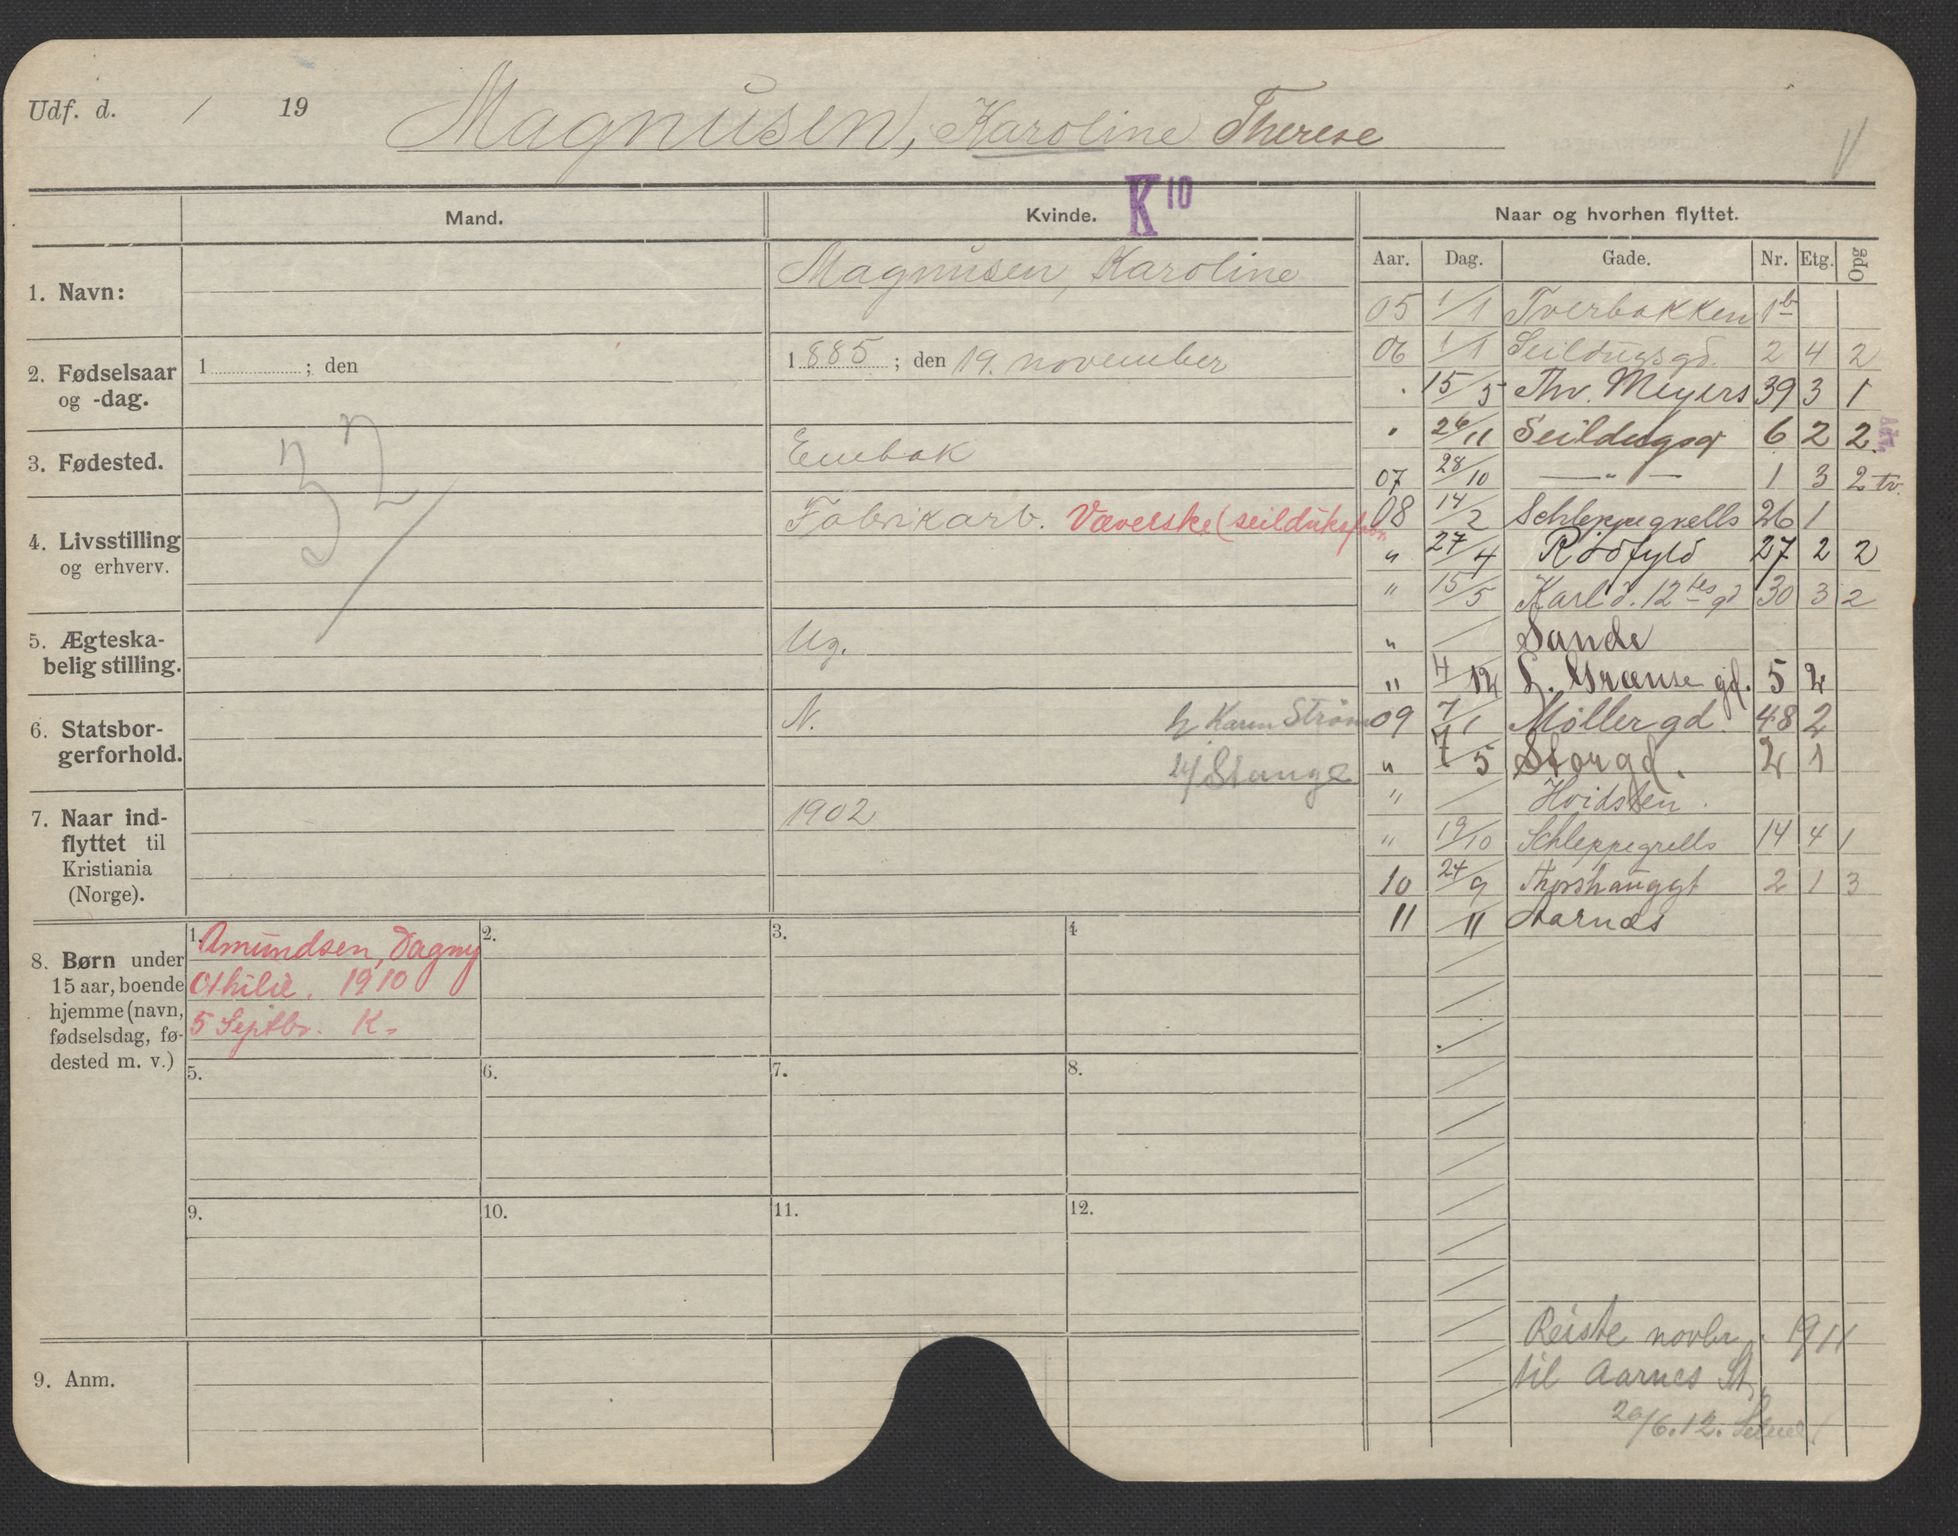 Udf. d. / 19 Magnusen, Karoline Therese
V
Mand.
Kvinde.
K 10
Naar og hvorhen flyttet.
Aar. Dag. Gade. Nr. Etg. Opg
1. Navn:
Magnusen, Karoline
2. Fødselsaar og -dag.
1 ; den
1 885 ; den 19. november
3. Fødested.
Enebak
4. Livsstilling og erhverv.
Fabrikarb. Væverske (seilduksfabr
5. Ægteska-
belig stilling.
Ug.
6. Statsbor-
gerforhold.
N.
h. Karen Strøm
Stange
7. Naar ind-
flyttet til
Kristiania
(Norge).
1902
32/
05 1/1 Tverbakken 1b
06 1/1 Seildugsgd. 2 4 2
" 15/5 Thv. Meyers 39 3 1
" 26/11 Seildugsg 6 2 2
07 28/10 — " — 1 3 2 tv.
08 14/2 Schleppegrells 26 1
" 27/4 Rødfyld 27 2 2
" 15/5 Karl d. 12tes gd 30 3 2
" / Sande
" 4/12 L. Grænse gd. 5 2
09 7/1 Møllergd. 48 2
" 7/5 Storgd. 2 1
" / Hvidsten.
" 19/10 Schleppegrells 14 4 1
10 24/9 Thorshauggt 2 1 3
11 /11 Aarnes
8. Børn under
15 aar, boende
hjemme (navn,
fødselsdag, fø-
dested m. v.)
1. Amundsen, Dagny
Othilie. 1910
5 Septbr. K.
2.
3.
4
5.
6.
7.
8.
9.
10.
11.
12.
9. Anm.
Reiste novbr. 1911
til Aarnes St.
20/6.12.